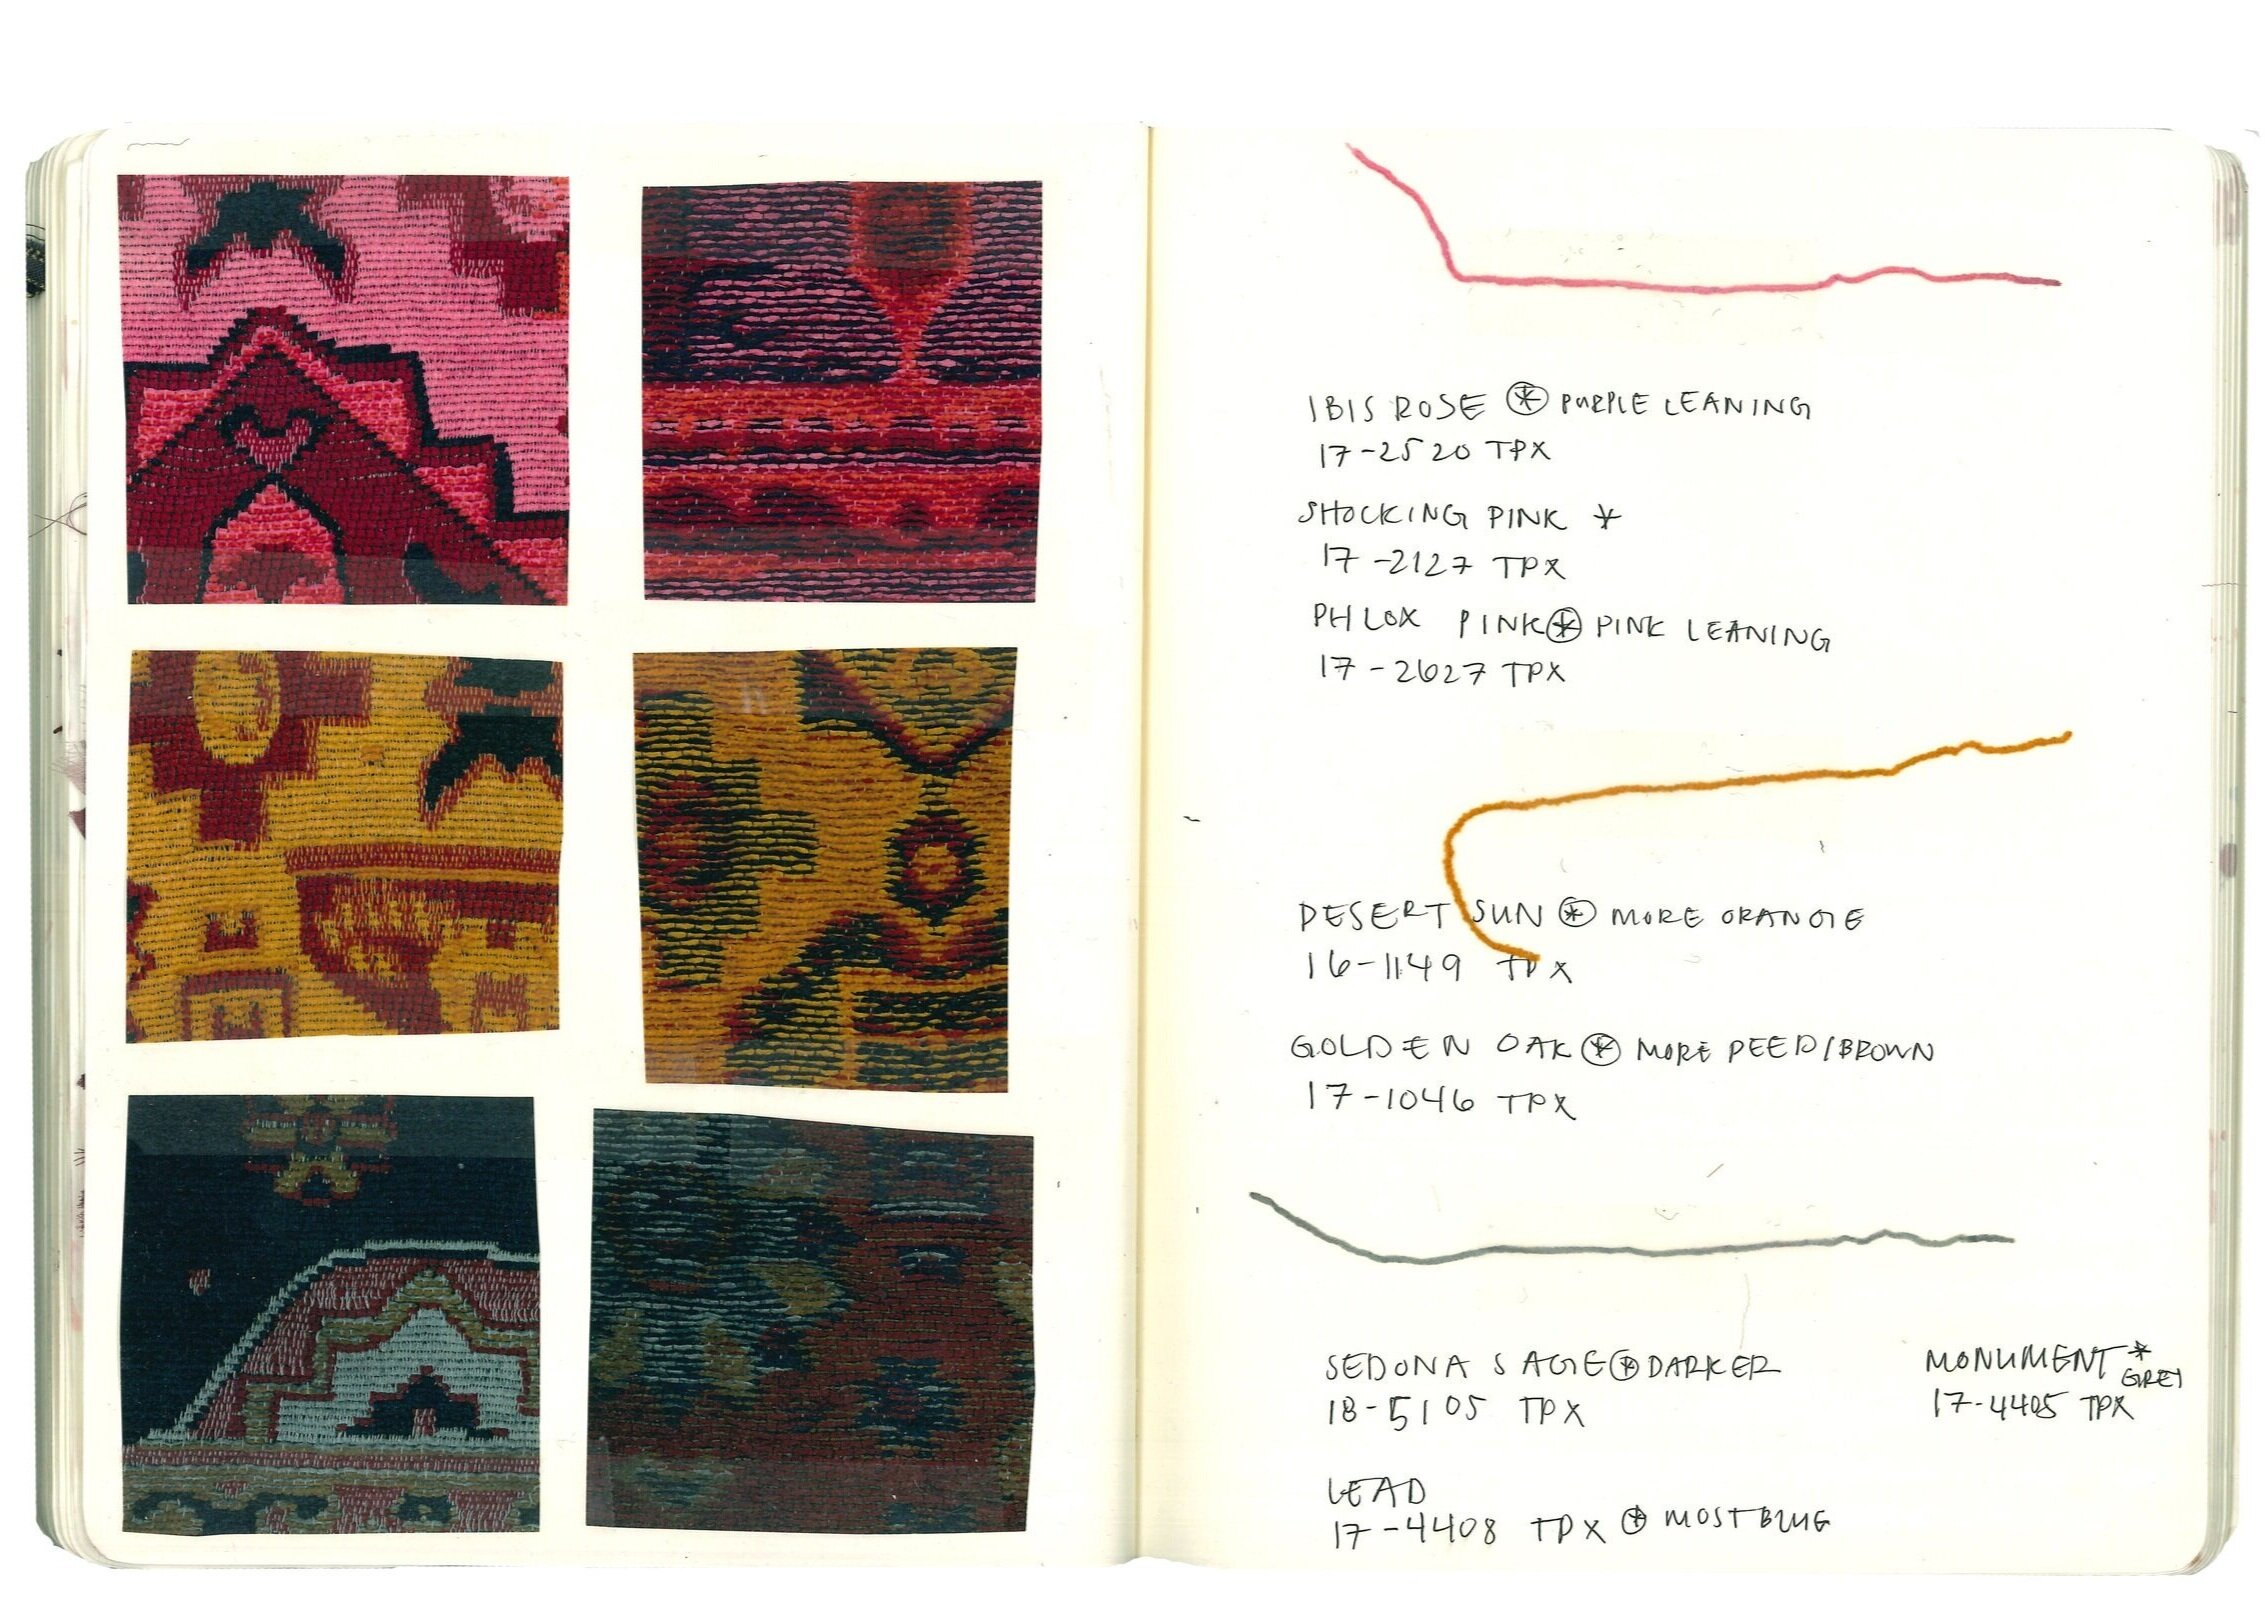 IBIS ROSE * PURPLE LEANING
17-2520 TPX
SHOCKING PINK *
17-2127 TPX
PHLOX PINK * PINK LEANING
17-2627 TPX
DESERT SUN * MORE ORANGE
16-1149 TPX
GOLDEN OAK * MORE DEED/BROWN
17-1046 TPX
SEDONA SAGE * DARKER
18-5105 TPX
MONUMENT *
GREY
17-4405 TPX
LEAD
17-4408 TPX * MOST BLUE